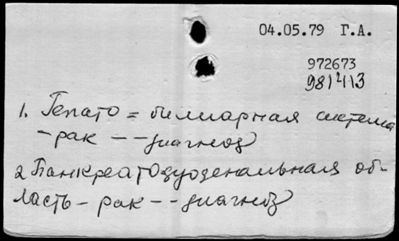 04.05.79 Г.А.
972673
981413
1. Гепато = билиарная система
- рак -- диагноз
2 Панкреатодуоденальная об-
ласть - рак -- диагноз